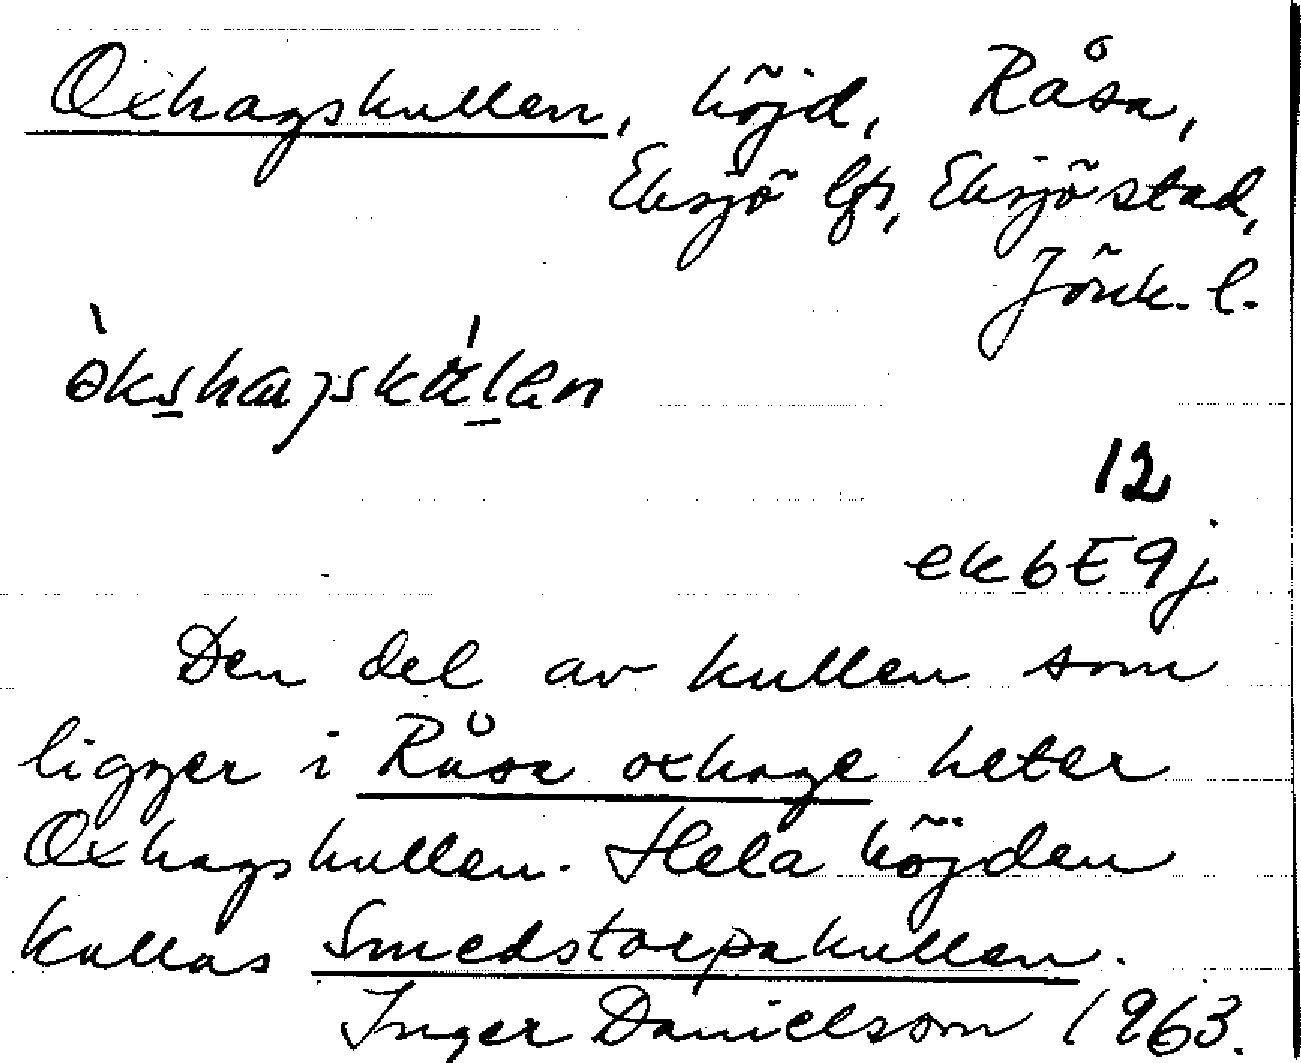 Oxhagskullen, höjd, Råsa,
Eksjö lfs, Eksjö stad,
Jönk. l.
12
ek 6E9j
Den del av kullen som
ligger i Råsa oxhage heter
Oxhagskullen. Hela höjden
kallas Smedstorpakullen.
Inger Danielsson 1963.